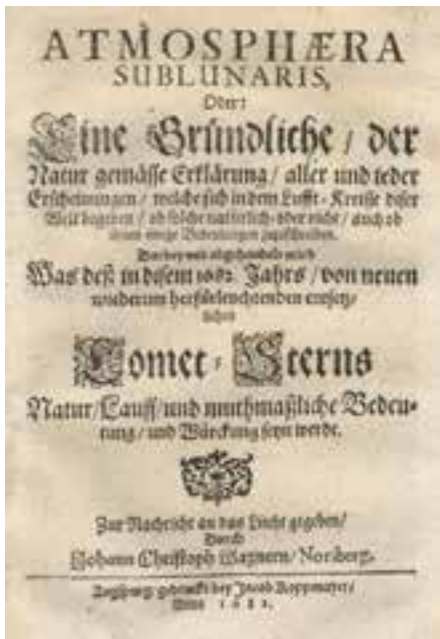 ATMOSPHÆRA
SUBLUNARIS,
Oder:
Eine Gründliche / der
Natur gemässe Erklärung / aller und ieder
Erscheinungen / welche sich in dem Lufft-Kreisse diser
Welt begeben / ob solche natürlich- oder nicht / auch ob
ihnen einige Bedeutungen zuzuschreiben.
Was deß in disem 1682. Jahrs / von neuen
wiederum herfürleuchtenden entsetz-
lichen
Comet-Sterns
Natur / Lauff / und muthmaßliche Bedeu-
tung / und Würckung seyn werde.
Zur Nachricht an das Liecht gegeben /
Durch
Johann Christoph Wagnern / Noriberg.
Augspurg / gedruckt bey Jacob Koppmayer /
Anno 1682.